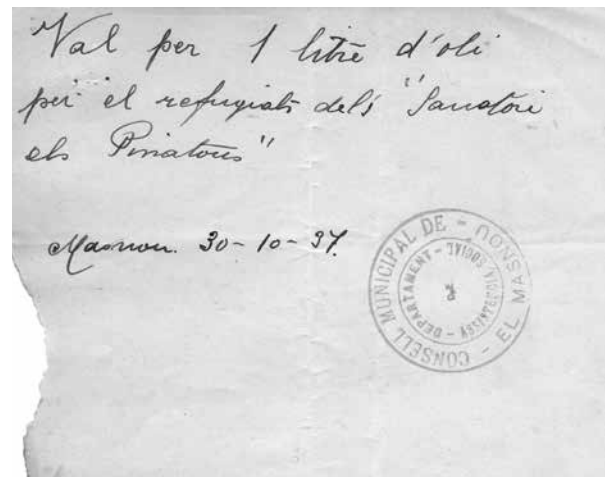 Val per 1 litre d'oli
per el refugiats dels "Sanatori
els Pinatons"
Masnou. 30-10-37.
CONSELL MUNICIPAL DE - EL MASNOU
DEPARTAMENT - ASSISTENCIA SOCIAL